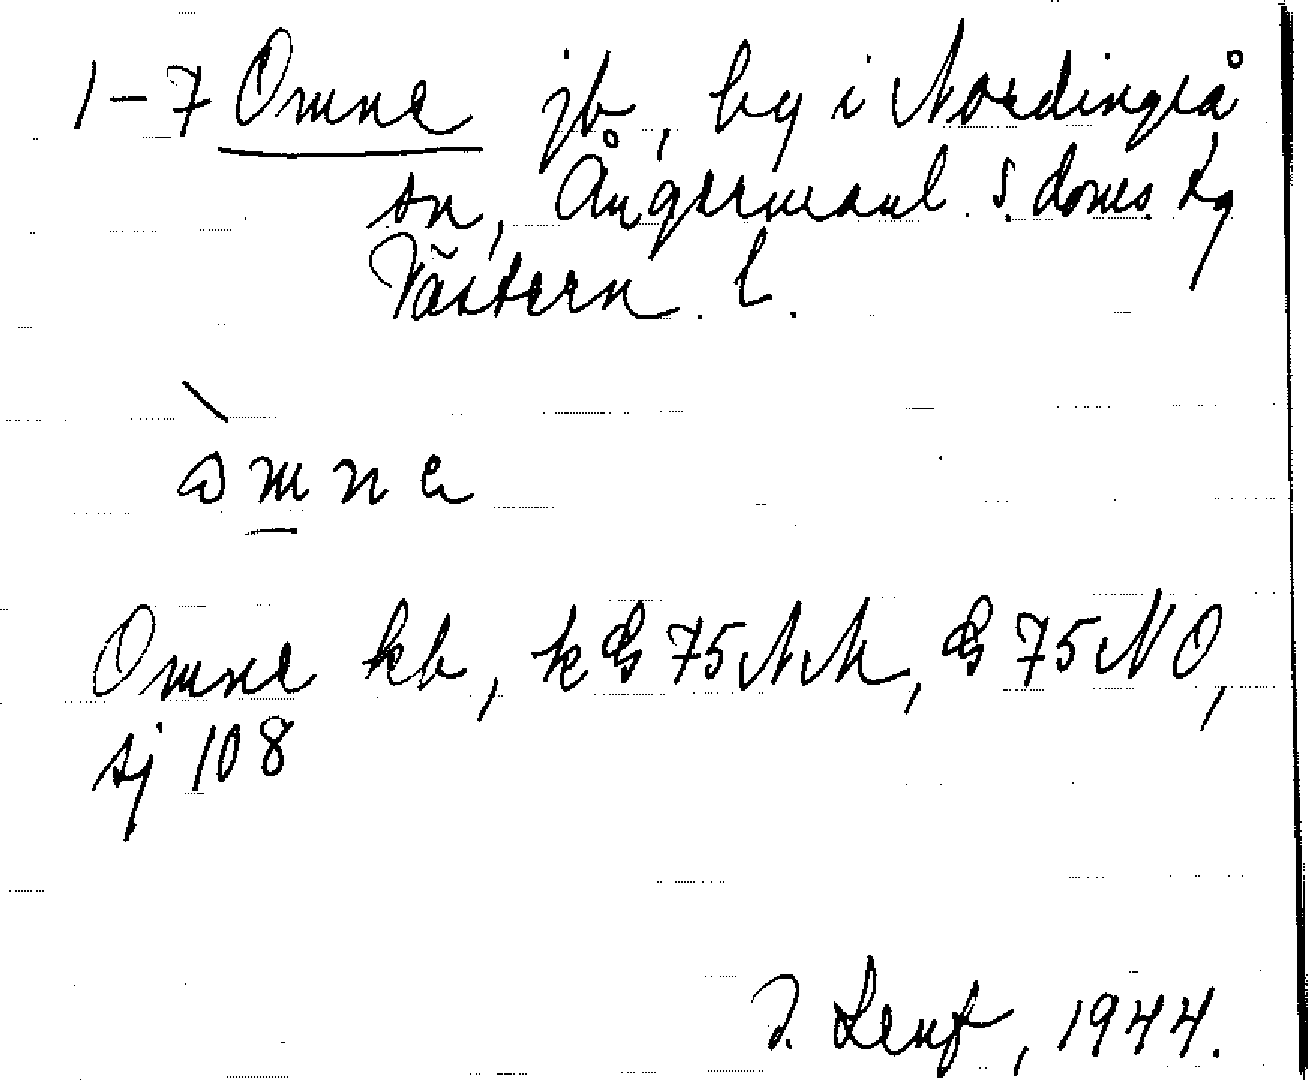 1–7 Omne jb, by i Nordingrå
sn, Ångermanl. s. doms. tg
Västern. l.
ò m n e
Omne kb, k GS 75 NM, GS 75 NO,
sj 108
1944.